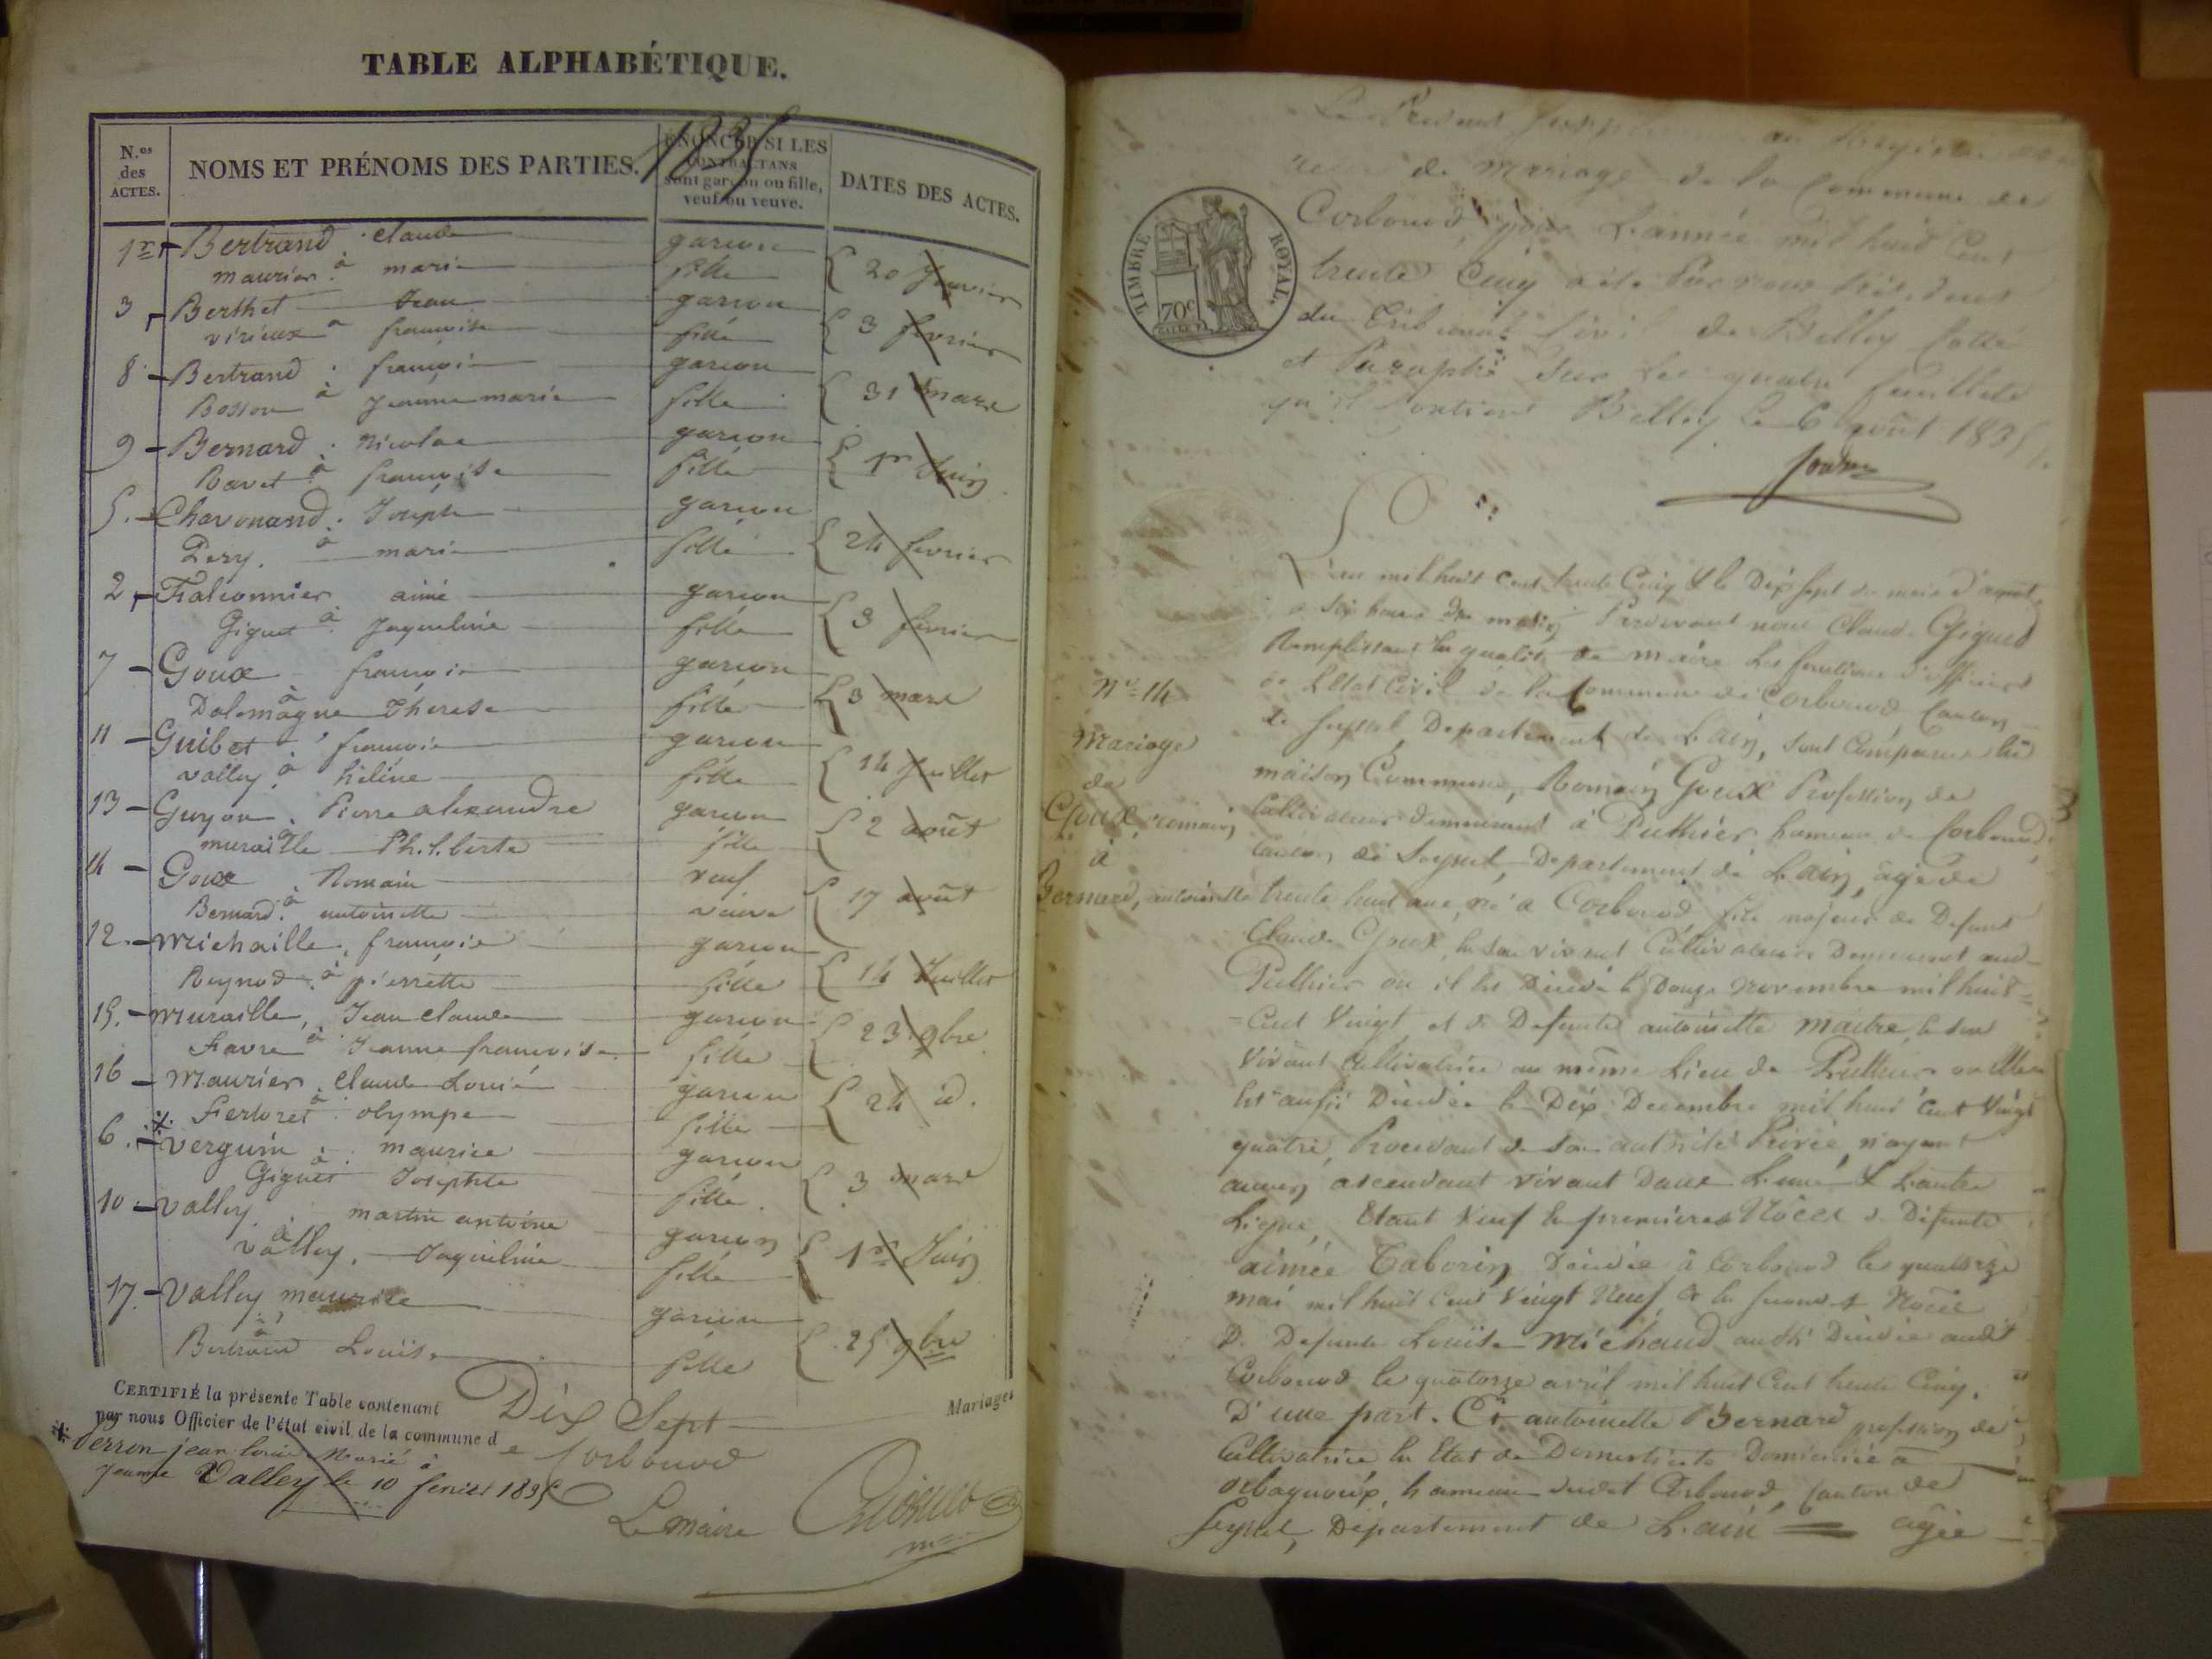 TABLE ALPHABÉTIQUE.
1835
N.os des ACTES.
NOMS ET PRÉNOMS DES PARTIES.
ÉNONCER SI LES CONTRACTANS sont garçon ou fille, veuf ou veuve.
DATES DES ACTES.
1er Bertrand claude garcon
maurier à marie fille 20 Janvier
3 Berthet Jean garcon
virieux à francoise fille 3 fevrier
8 Bertrand francois garcon
Bosson à Jeanne marie fille 31 mars
9 Bernard Nicolas garcon
Ravet à francoise fille 1er Juin
5. Chavonand Joseph garcon
Pery. à marie fille 24 fevrier
2 Falconnier aimé garcon
Giguet à Jaqueline fille 3 fevrier
7 Goux francois garcon
Dalemagne à Thérese fille 3 mars
11 Guibet francois garcon
valley à héléne fille 14 Juillet
13 Guyon Pierre alexandre garcon
muraille à Philiberte fille 2 août
14 Goux Romain veuf
Bernard à antoinette veuve 17 août
12. Michaille, francois garcon
Reynod à pierrette fille 14 Juillet
15. Muraille, Jean claude garcon
Favre à Jeanne francoise fille 23 9bre
16 Maurier claude Louis garcon
Fertoret à olympe fille 24 id.
6. Verguin maurice garcon
Giguet à Josephte fille 3 mars
10 Valley martin antoine garcon
valley. à Jaqueline fille 1er Juin
17. Valley maurice garcon
Bertrand à Louise fille 25 9bre
CERTIFIÉ la présente Table contenant Dix Sept Mariages
par nous Officier de l'état civil de la commune de Corbonod
Perron jean louis Marié à
jeanne Valley le 10 fevrier 1835
Le maire
Le Présent au Registre
de Mariage de la Commune de
Corbonod, pour L'année mil huit Cent
trente Cinq a été Par nous Président
du Tribunal Civil de Belley Cotté
et Paraphé Sur Les quatre feuillets
qu'il Contient Belley Le 6 août 1835.
TIMBRE ROYAL.
70c
L'an mil huit Cent trente Cinq & le Dix Sept du mois d'août
à Six heures du matin Pardevant nous Claude Giguet
Remplissant en qualité de maire Les fonctions d'officier
de L'Etat Civil de la Commune de Corbonod Canton
de Seyssel Departement de L'ain, Sont Comparus en
maison Commune, Romain Goux Profession de
Cultivateur demeurant à Puthier hameau de Corbonod,
Canton de Seyssel, Departement de L'ain, agé de
trente huit ans, né à Corbonod fils majeur de Defunt
Claude Goux, en Son vivant Cultivateur Demeurant aud
Puthier où il est Décédé le Douze novembre mil huit
Cent Vingt, et de Defunte antoinette Maitre, en Son
vivant Cultivatrice au même Lieu de Puthier où elle
est aussi Décédée le Dix Decembre mil huit Cent Vingt
quatre, Procedant de Son autorité Privée, n'ayant
aucun ascendant vivant Dans L'une & L'autre
Ligne, Etant Veuf En premieres Noces de Defunte
aimée Taborin Décédée à Corbonod le quatorze
mai mil huit Cent Vingt Neuf & En Secondes Noces
De Defunte Louise Michaud aussi Décédée audit
Corbonod le quatorze avril mil huit Cent trente Cinq,
D'une part. Et antoinette Bernard profession de
Cultivatrice En Etat de Domesticité Domiciliée à
orbagnoux, hameau dudit Corbonod, Canton de
Seyssel, Département de L'ain agée
No 14
Mariage
de
Goux, romain
à
Bernard, antoinette